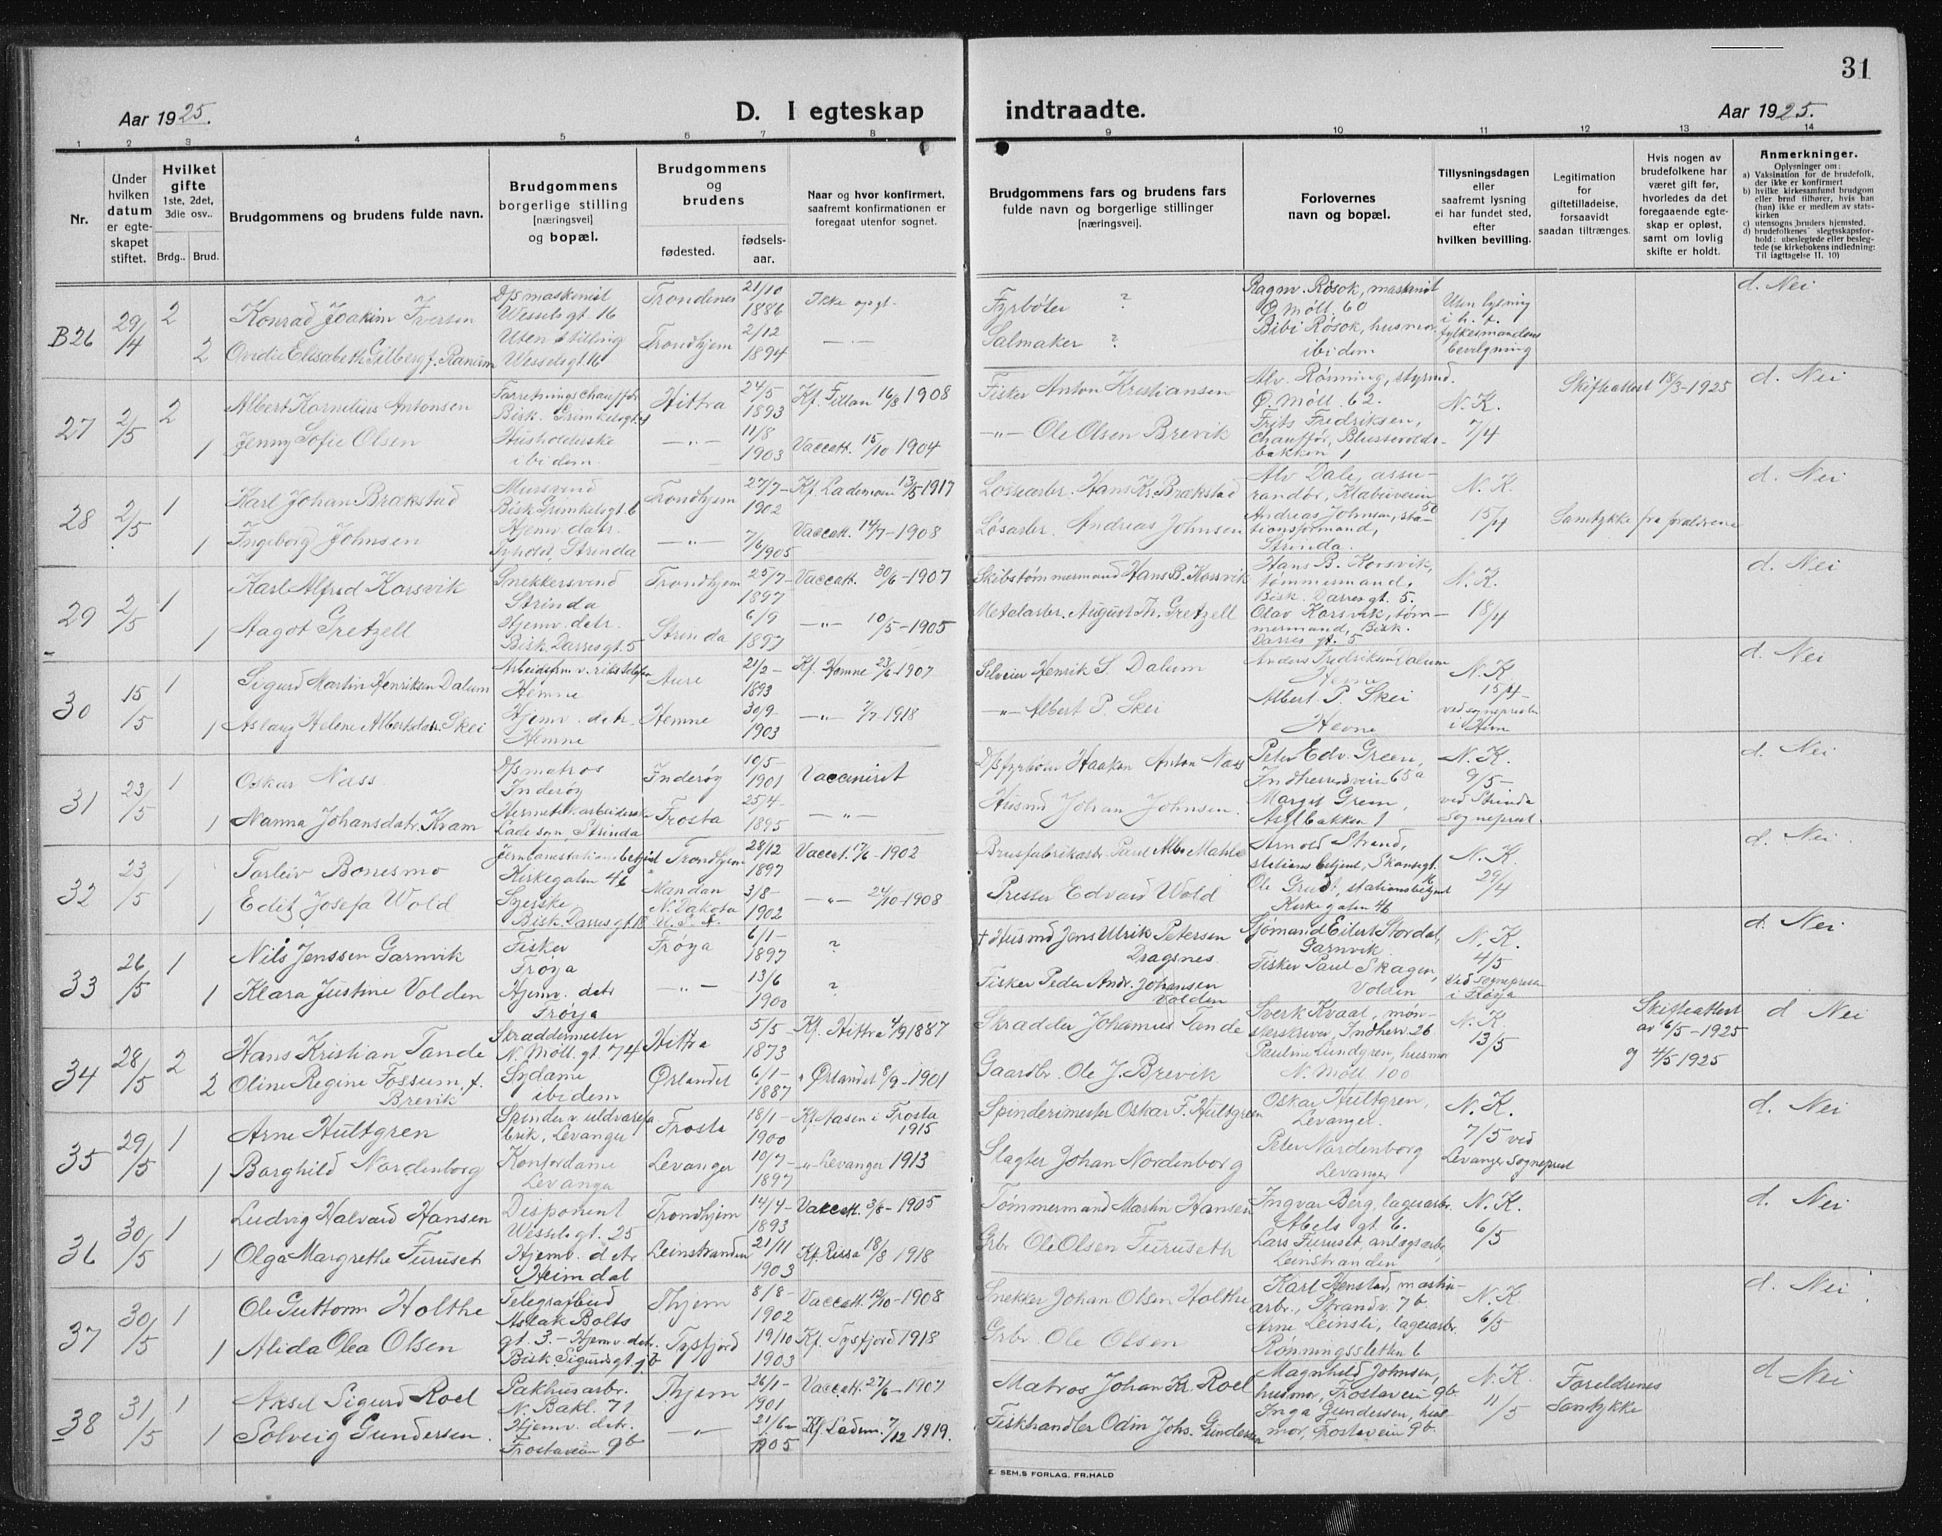 31
Aar 1925.
D. I egteskap indtraadte.
Aar 1925.
1 2 3 4 5 6 7 8 9 10 11 12 13 14
Nr.
Under hvilken datum er egteskapet stiftet.
Hvilket gifte 1ste, 2det, 3die osv..
Brdg.. Brud.
Brudgommens og brudens fulde navn.
Brudgommens borgerlige stilling [næringsvei] og bopæl.
Brudgommens og brudens
fødested.
fødselsaar.
Naar og hvor konfirmert, saafremt konfirmationen er foregaat utenfor sognet.
Brudgommens fars og brudens fars fulde navn og borgerlige stillinger [næringsvei].
Forlovernes navn og bopæl.
Tillysningsdagen eller saafremt lysning ei har fundet sted, efter hvilken bevilling.
Legitimation for giftetilladeise, forsaavidt saadan tiltrænges.
Hvis nogen av brudefolkene har været gift før, hvorledes da det foregaaende egteskap er opløst, samt om lovlig skifte er holdt.
Anmerkninger.
Oplysninger om:
a) Vaksination for de brudefolk, der ikke er konfirmert
b) hvilke kirkesamfund brudgom eller brud tilhører, hvis han (hun) ikke er medlem av statskirken
c) utensogns bruders hjemsted.
d) brudefolkenes slegtsskapsforhold: ubeslegtede eller beslegtede (se kirkebokens indledning: Til Iagttagelse II. 10)
B26 29/4 2 Konrad Joakim Iversen D/s maskinist Wesselsgt 16 Trondenes 21/10 1886 Ikke opgt. Fyrbøter ? Ragnv. Røsok, maskinist Ø. Møll. 60 Uten lysning i h. t. fylkesmandens bevilgning d. Nei
2 Ovidie Elisabeth Gilberg f. Ranum Uten stilling Wesselsgt 16 Trondhjem 2/12 1894 Salmaker ? Bibi Røsok, husmor, ibidem
27 2/5 2 Albert Kornelius Antonsen Bisk. Grimkelsgt. Hittra 24/5 1893 Kf. Fillan 16/8 1908 Fisker Anton Kristiansen Alv. Rønning, styrmd. Ø. Møll. 62. N. K. 7/4 Skifteattest 18/3-1925 d. Nei
1 Jenny Sofie Olsen Husholderske ibidem — „ — 11/8 1903 Vaccatt. 15/10 1904 — „ — Ole Olsen Brevik Frits Fredriksen, Chauffør, bakken 1
28 2/5 1 Karl Johan Brakstad Mursvend Bisk Grimkelsgt 6 Trondhjem 27/7- 1902 Kf. Lademoen 13/5-1917 Losearbr. Hans Kr. Brakstad Alv Dale, assurandør, Klæbuveien 50 N. K. 15/4 Samtykke fra forældrene d. Nei
1 Ingeborg Johnsen Hjemv. datr. Strinda — „ — 7/6 1905 Vaccatt. 14/7-1908 Løsarbr. Andreas Johnsen Andreas Johnsen, stationsformand, Strinda.
29 2/5 1 Karl Alfred Korsvik Snekkersvend Strinda Trondhjem 25/7- 1897 Vaccatt. 30/6-1907 Skibstømmermand Hans B. Korsvik Hans B. Korsvik, tømmermand, Bisk. Darresgt. 5. N. K. 18/4 d. Nei
1 Aagot Gretzell Hjemv. detr. Bisk. Darresgt 5 Strinda 6/9 1897 — „ — 10/5-1905 Metalarbr. August Th. Gretzell Olav Korsvik, tømmermand, Bisk. Darres gt. 5
30 15/5 1 Sigurd Martin Henriksen Dalum Hemne Aure 21/2- 1893 Kf Hemne 23/6-1907 Selveier Henrik S. Dalum Anders Fredriksen Dalum Hevne N. K. 15/4 ved sognepresten i Hevne d. Nei
1 Aslaug Helene Albertsdatr. Skei Hjemv. detr. Hemne Hemne 30/9- 1903 — „ — 7/7-1918 — „ — Albert P. Skei Albert P. Skei Hevne
31 23/5 1 Oskar Næss D/s matros Inderøy Inderøy 10/5- 1901 Vaccineret D/sfyrbøter Haakon Anton Næss Peter Edv. Green, Indherredsveien 65a N. K. 9/5- ved Strinda Sogneprest d. Nei
1 Nanna Johansdatr. Kvam Hermetikarbeiderske Lade sogn Strinda Frosta 25/4- 1895 — „ — Husmd Johan Johnsen. Margit Green, Asylbakken 1
32 23/5 1 Torleiv Bonesmo Jernbanestationsbetjent Kirkegaten 46 Trondhjem 28/12 1897 Vaccat. 17/6-1902 Brusfabrikarbr. Paul Albr. Mahle Arnold Strand, stationsbetjent, Skansegt. N. K. 29/4 d. Nei
1 Edit Josefa Wold Syerske Bisk. Darresgt 18 Mandan N. Dakota 3/8- 1902 — „ — 24/10-1908 Presser Edvard Wold Ole Grudt, stationsbetjent Kirkegaten 46
33 26/5 1 Nils Jenssen Garnvik Fisker Frøya Frøya 6/1- 1897 ? † Husmd Jens Ulrik Petersen Dragsnes. Sjømand Eilert Stordal, Garnvik N. K. 4/5 Ved Sogneprest i Frøya d. Nei
1 Klara Justine Volden Hjemv. detr Frøya — „ — 13/6 1900 ? Fisker Peder Andr. Johansen Volden Fisker Paul Skagen, Volden
34 28/5 2 Hans Kristian Tande Skraddermester N. Møll. gt. 74 Hittra 5/5- 1873 Kf. Hittra 4/9 1887 Skrædder Johannes Tande Sverk Kvaal, mønsterskriver, Indherv. 26 N. K. 13/5 Skifteattest av 6/5-1925 og 4/5 1925 d Nei
2 Oline Regine Fossum, f. Brevik Sydame ibidem Ørlandet 6/1- 1887 „ Ørlandet 8/9-1901 Gaardbr. Ole J. Brevik Pauline Lundgren, husmor N. Møll 100
35 29/5 1 Arne Hultgren Spinder v. uldvarefabrik, Levanger Frosta 18/1- 1900 Kf. Aasen i Frosta 1915 Spinderimester Oskar F. Hultgreen Oskar Hultgren, Levanger. N. K. 7/5 ved Levanger Sogneprest d. Nei
1 Borghild Nordenborg Kontordame Levanger Levanger 10/7- 1897 „ Levanger 1913 Slagter Johan Nordenborg Peter Nordenborg Levanger
36 30/5 1 Ludvig Halvard Hansen Disponent Wesselsgt. 25 Trondhjem 14/4- 1893 Vaccatt. 3/8-1905 Tømmermand Martin Hansen Ingvar Berg, lagerarbr. Abels gt. 6. N. K. 6/5 d. Nei
1 Olga Margrethe Furuset Hjemv. detr Heimdal Leinstranden 21/11 1903 Kf. Rissa 18/8 1918 Grbr Ole Olsen Furuseth Lars Furuset, anlægsarbr, Leinstranden
37 30/5 1 Ole Guttorm Holthe Telegrafbud Aslak Bolts gt. 3 - Thjem 8/8- 1902 Vaccatt. 12/10-1908 Snekker Johan Olsen Holthe Karl Stenstad, maskinarbr., Strandv. 7b. N. K. 6/5 d. Nei
1 Alida Olea Olsen Hjemv. detr. Bisk. Sigurdsgt. 7b Tysfjord 19/10 1903 Kf. Tysfjord 1918 Grbr. Ole Olsen Arne Leinsli, lagerarbr. Rønningssletten 6
38 31/5 1 Aksel Sigurd Roel Pakhusarbr. N. Bakl. 71 Thjem 26/1- 1901 Vaccatt. 27/6-1907 Matros Johan Kr. Roel Magnhild Johnsen, husmor, Frostaveien 9b N. K. 11/5 Foreldrenes Samtykke d Nei
1 Solveig Gundersen. Hjemv. detr. Frostaveien 9b — „ — 21/6- 1905 Kf. Ladem. 7/12 1919. Fiskhandler Odin Johs. Gundersen Inga Gundersen, husmor, Frostaveien 9b.
E. SEM.S FORLAG, FR.HALD